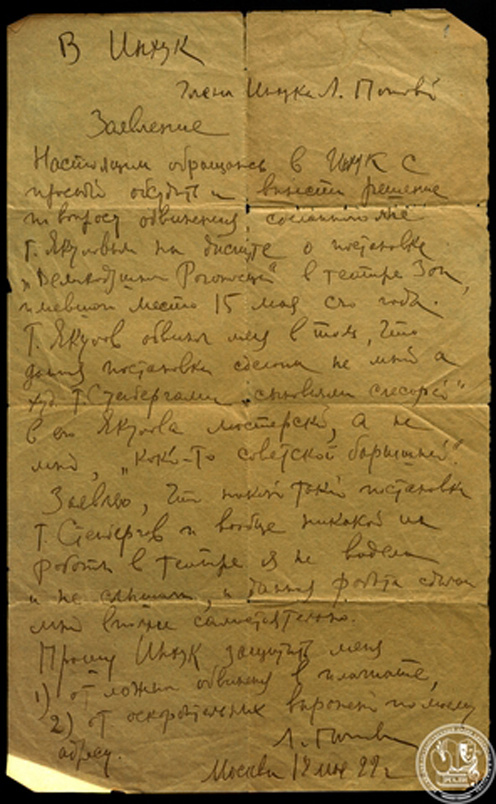 В Инхук
Члена Инхука Л. Поповой
Заявление
Настоящим обращаюсь в ИНХУК с
просьбой обсудить и вынести решение
по вопросу обвинения сделанного мне
т. Якуловым на диспуте о постановке
„Великодушного Рогоносца" в театре Зон,
имевшем место 15 мая с/го года.
Т. Якулов обвинил меня в том, что
данная постановка сделана не мной а
худ. т. Стенбергами „сыновьями слесарей"
в его Якулова мастерской, а не
мной, „какой-то советской барышней".
Заявляю, что никакой такой постановки
т. Стенбергов и вообще никакой их
работы в театре я не видела
и не слышала, и данная работа сделана
мной вполне самостоятельно.
Прошу Инхук защитить меня
1) от ложных обвинений в плагиате,
2) от оскорбительных выражений по моему
адресу.
Л. Попова
Москва мая 22 г.